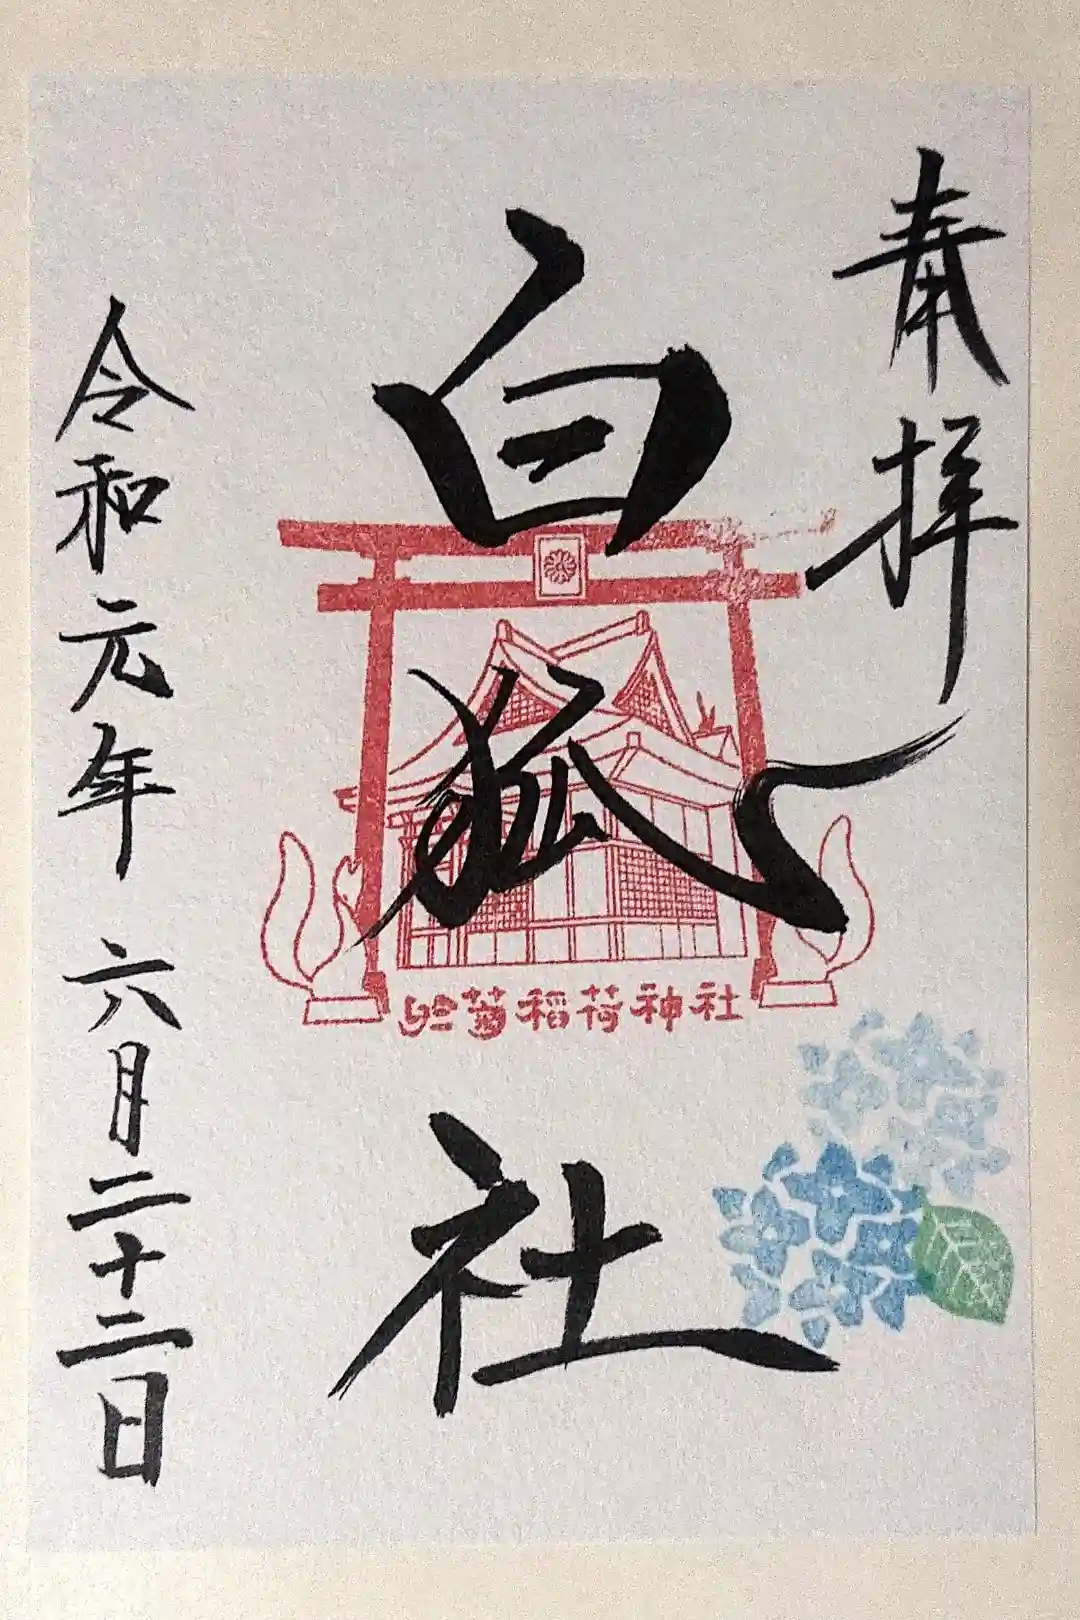 奉拝
白狐社
於菊稲荷神社
令和元年 六月二十二日